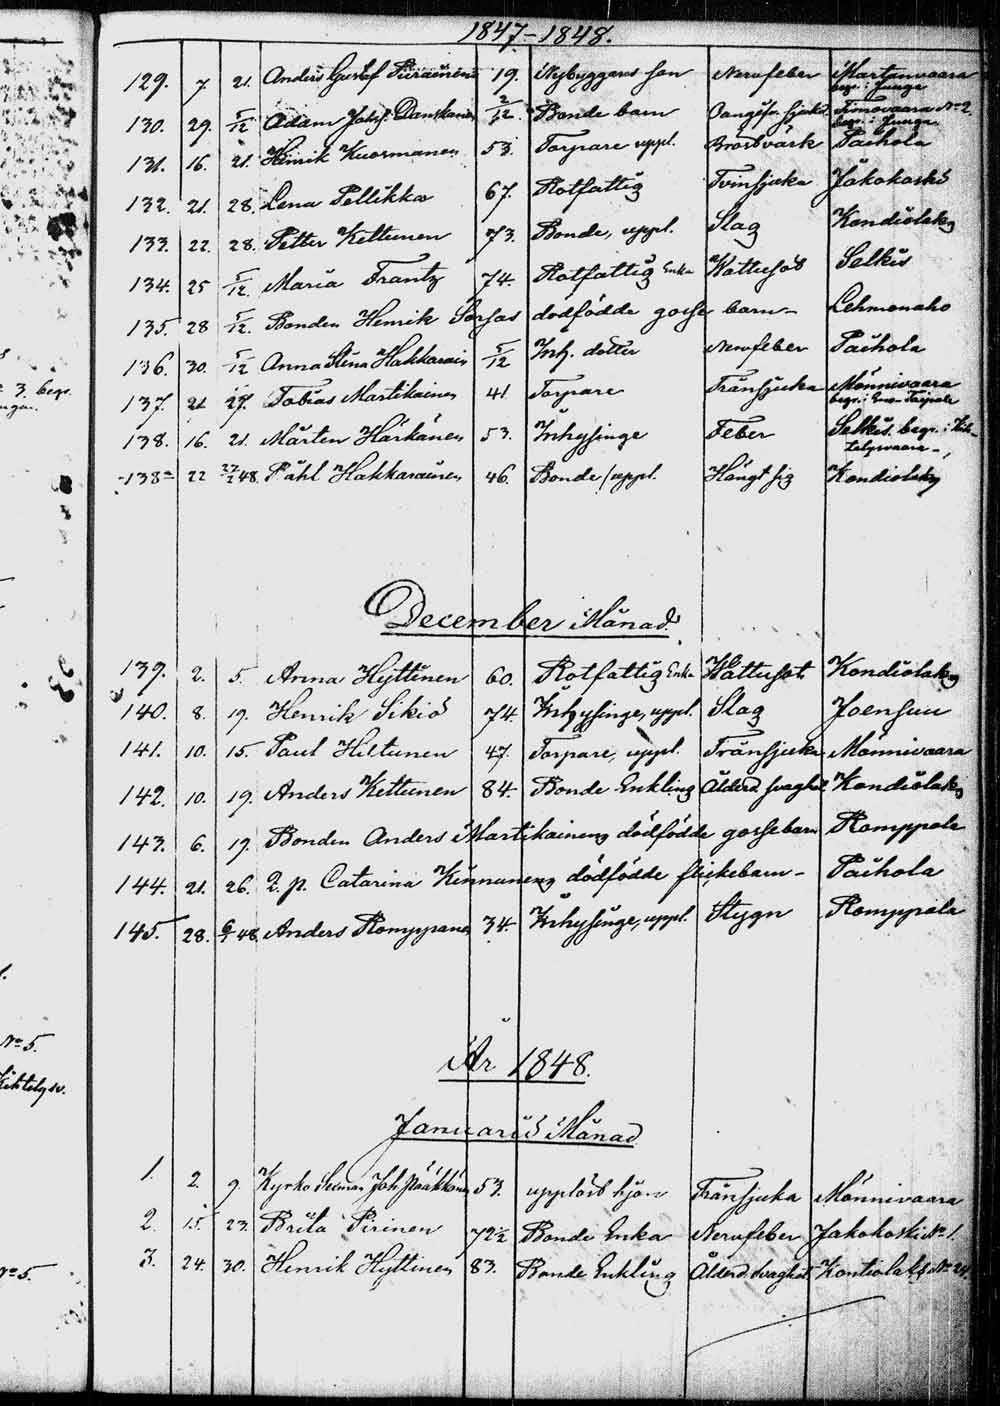 1847-1848.
129. 7. 21. Anders Gustaf Piirainen 19. Nybyggares son Nervfeber Martinvaara
begr. i Junga
130. 29. 5/12 Adam Johs. Danskanen 2/12. Bonde barn Timovaara No 2.
begr. i Junga
131. 16. 21. Henrik Kuormanen 53. Torpare uppl. Bröstvärk Paihola
132. 21. 28. Lena Pellikka 67. Rotfattig Tvinsjuka Jakokoski
133. 22. 28. Petter Kettunen 73. Bonde, uppl. Slag Kondiolaks
134. 25 5/12. Maria Frantz 74. Rotfattig Enka Wattusot Selkis
135. 28 5/12. Bonden Henrik Sorsas dödfödde gosse barn - Lehmonaho
136. 30. 5/12 Anna Stina Hakkarain 5/12 Inh. dotter Nervfeber Paihola
137. 21 27. Tobias Martikainen 41 Torpare Trånsjuka Mönnivaara
begr. i Eno
138. 16. 21. Mårten Härkönen 53. Inhysinge Feber Selkis begr. i Kih-
telysvaara -
138 a 22 27/2 48. Påhl Hakkarainen 46. Bonde, uppl. Hängt sig Kondiolaks
December Månad.
139. 2. 5. Anna Hyttinen 60. Rotfattig Enka Wattusot Kondiolaks
140. 8. 19. Henrik Sikiö 74. Inhysinge, uppl. Slag Joensuu
141. 10. 15. Paul Hiltunen 47. Torpare, uppl. Trånsjuka Mönnivaara
142. 10. 19. Anders Kettunen 84. Bonde Enkling Ålderd. svaghet Kondiolaks
143. 6. 19. Bonden Anders Martikainens dödfödde gossebarn Romppala
144. 21. 26. Q. p. Catarina Kinnunens dödfödde flickebarn - Paihola
145. 28. 6/1 48. Anders Romppanen 34. Inhysinge, uppl. Stygn Romppala
År 1848.
Januarii Månad
1. 2 9. Kyrko Joh. Pääkkönen 53. upplöst hjon Trånsjuka Mönnivaara
2. 15. 23. Brita Pirinen 72 1/2 Bonde Enka Nervfeber Jakokoski No 1.
3. 24. 30. Henrik Hyttinen 83. Bonde Enkling Ålderd. svaghet Kontiolaks No 24.
3. begr.
No 5.
Kihtelysv.
No 5.